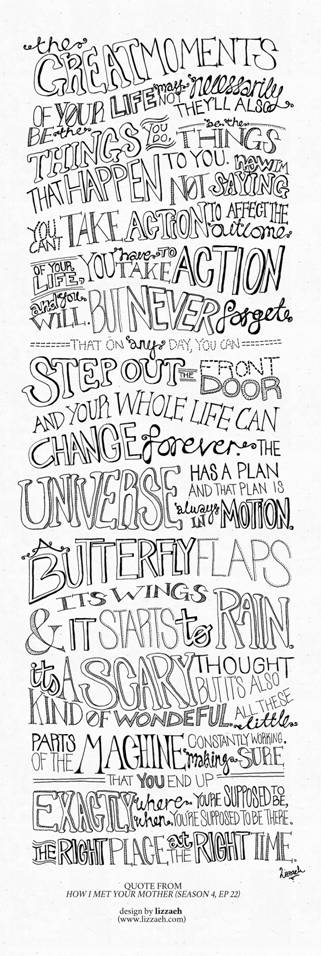 the
GREAT MOMENTS
OF YOUR LIFE may NOT necessarily
BE the THEY'LL ALSO
THINGS YOU DO, be the THINGS
THAT HAPPEN TO YOU. now I'm
NOT SAYING
YOU CAN'T TAKE ACTION TO AFFECT THE outcome
OF YOUR LIFE, YOU have TO TAKE ACTION
and you WILL. BUT NEVER forget
THAT ON any DAY, YOU CAN
STEP OUT THE FRONT DOOR
AND YOUR WHOLE LIFE CAN
CHANGE forever. THE
UNIVERSE HAS A PLAN
AND THAT PLAN IS
always IN MOTION.
A BUTTERFLY FLAPS
ITS WINGS
& IT STARTS to RAIN.
it's A SCARY THOUGHT
BUT IT'S ALSO
KIND OF WONDEFUL. ALL THESE little
PARTS OF THE MACHINE CONSTANTLY WORKING.
making SURE
THAT YOU END UP
EXACTLY where YOU'RE SUPPOSED TO BE,
when YOU'RE SUPPOSED TO BE THERE.
THE RIGHT PLACE at THE RIGHT TIME.
Lizzaeh
QUOTE FROM
HOW I MET YOUR MOTHER (SEASON 4, EP 22)
design by lizzaeh
(www.lizzaeh.com)